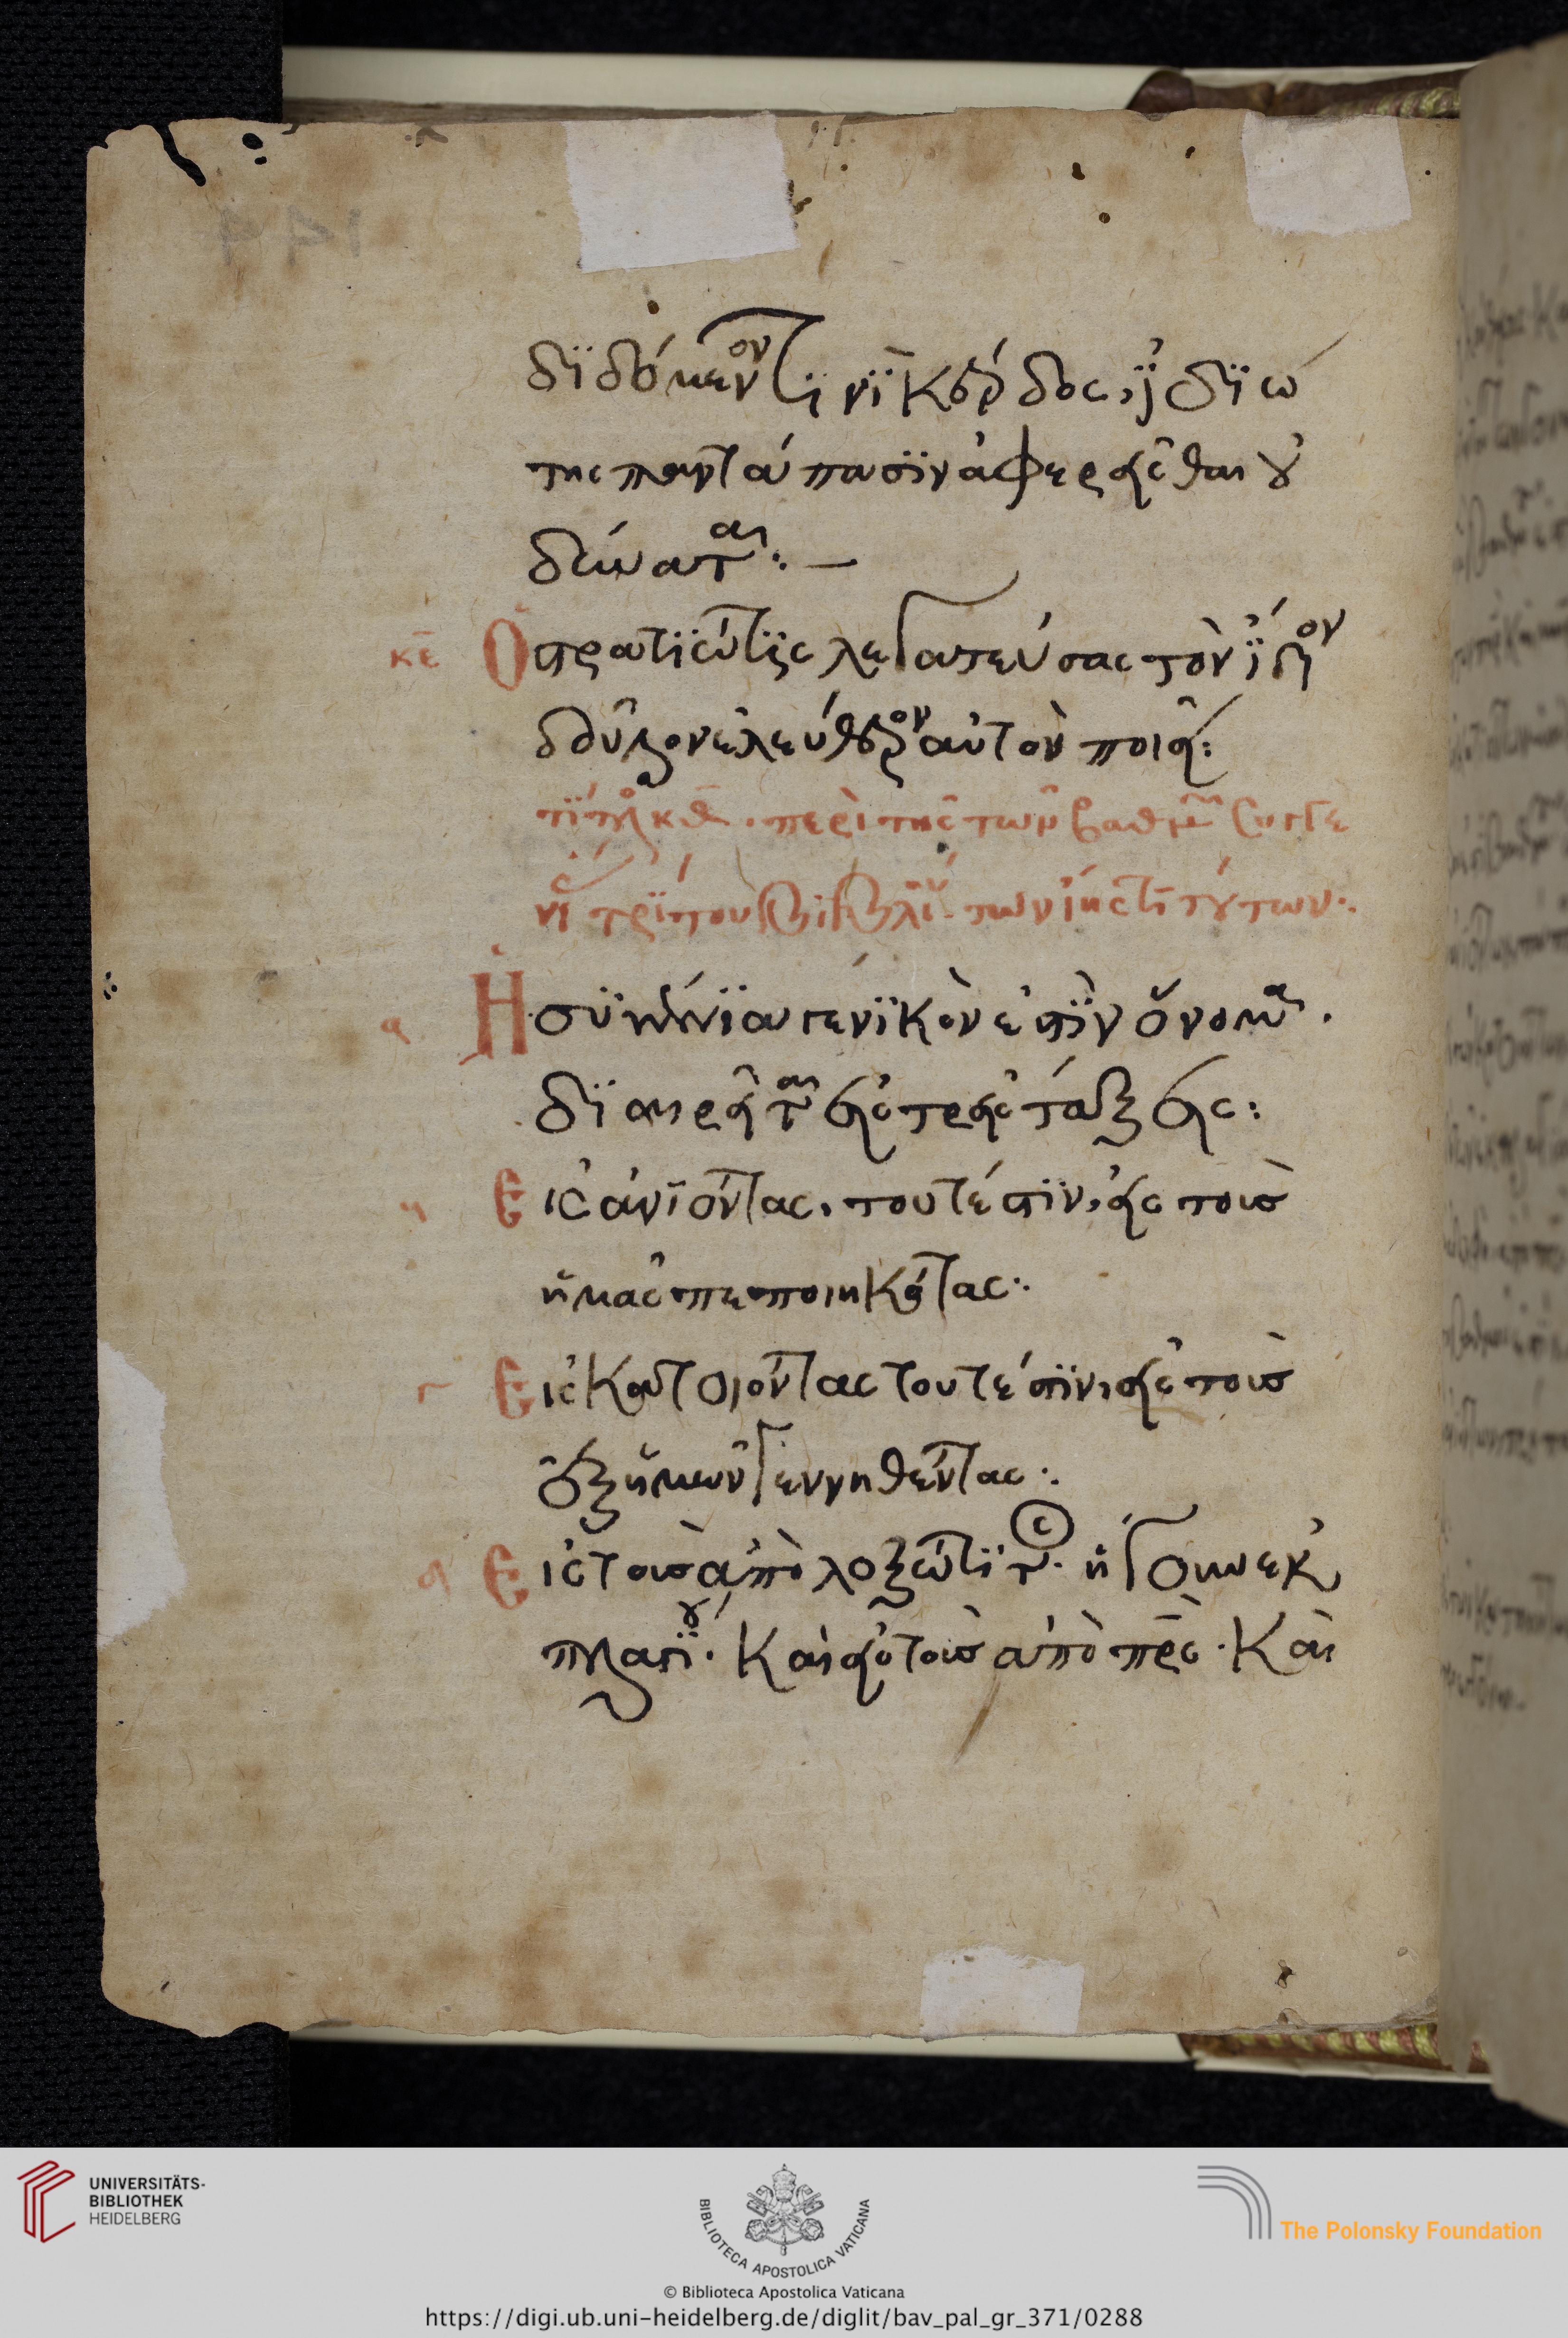 διδόμενόν τινι κέρδος, ϊδιώ
της παντάπασιν ἀφερεῖσθαι οὐ
δύναται:—
κε Ὁ πρατίστις λεγατεύσας τὸν ἴδιον
δοῦλον ἐλεύθερον αὐτὸν ποιεῖ:
τίτλος κθ. περὶ τῆς τῶν βαθμῶν συγγε
νείας τρίτου βιβλίου τῶν ἰνστιτούτων:.
α Ἡ συγγένεια γενικὸν ἐστὶν ὄνομα.
διαιρεῖται εἰς τρεῖς τάξεις:
Εἰς ἀνιόντας, τουτέστιν, εἰς τοὺς
ἡμᾶς πεποιηκότας:.
γ Εἰς κατιόντας τουτέστιν, εἰς τοὺς
ἐξ ἡμῶν γεννηθέντας:.
δ Εἰς τοὺς ἀπὸ λοξώτιτος. ἤγουν ἐκ
πλαγίου. Καὶ εἰς τοὺς ἀπὸ πρς. Καὶ
UNIVERSITÄTS-
BIBLIOTHEK
HEIDELBERG
BIBLIOTECA APOSTOLICA VATICANA
The Polonsky Foundation
© Biblioteca Apostolica Vaticana
https://digi.ub.uni-heidelberg.de/diglit/bav_pal_gr_371/0288